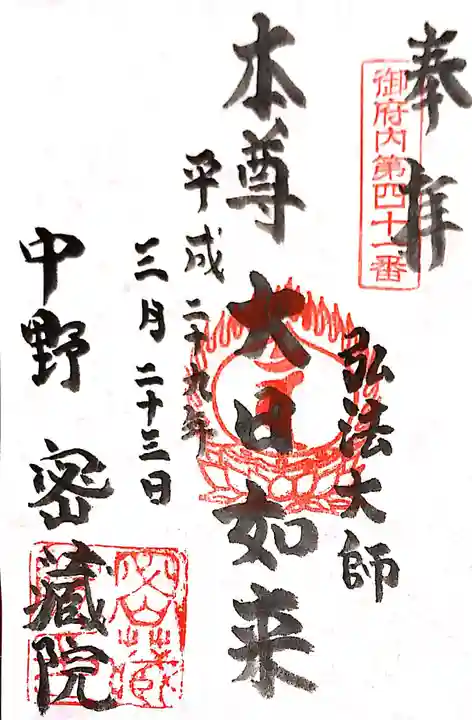 奉拝
御府内第四十一番
弘法大師
本尊 大日如来
平成二十九年
三月二十三日
中野 密蔵院